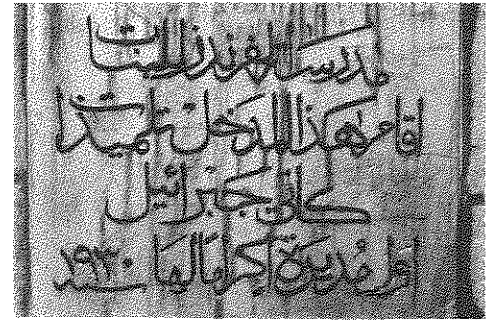 مدرسة الفرندز للبنات
اقام هذا المدخل تلميذات
كاتي جبرائيل
اول مديرة اكراما لها سنة ١٩٣٠